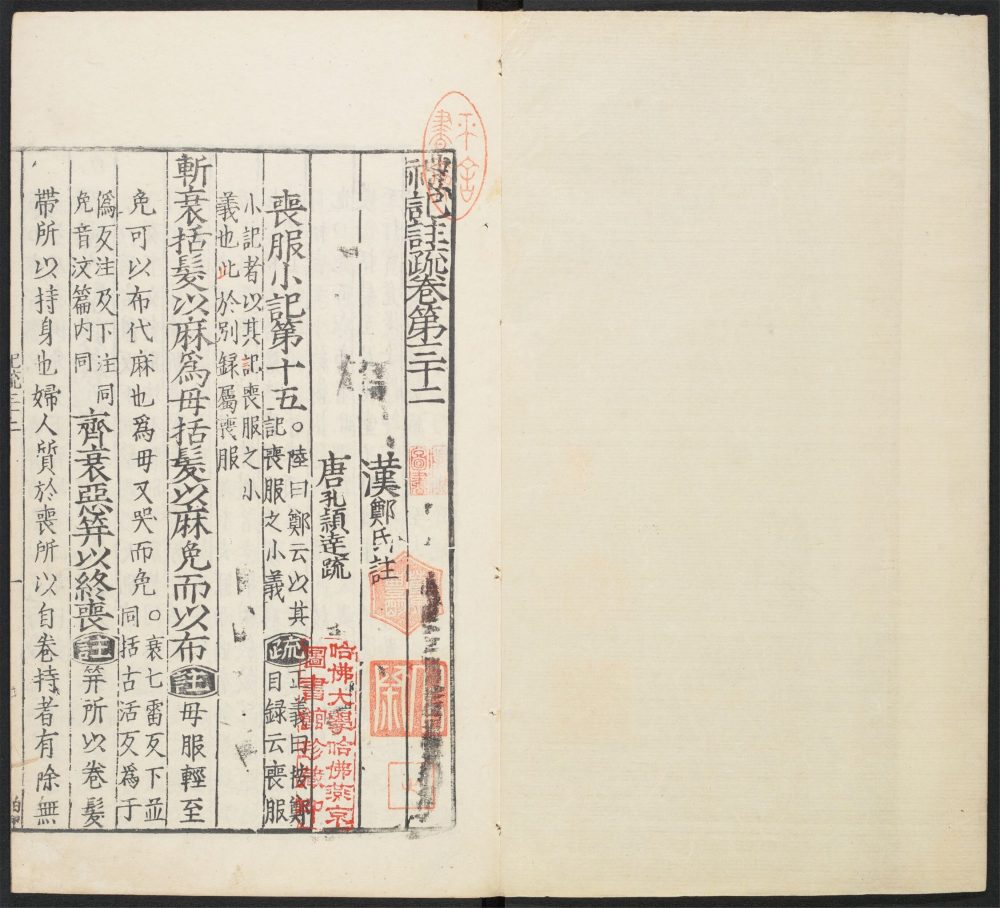 禮記註疏卷第三十二
漢鄭氏註
唐孔穎逹疏
喪服小記第十五。陸曰鄭云以其
記喪服之小義疏正義曰按鄭
目録云喪服
小記者以其記喪服之小
義也此於别録屬喪服
斬衰括髮以麻爲母括髮以麻免而以布註母服輕至
免可以布代麻也爲母又哭而免。衰七雷反下並
同括古活反爲于
僞反注及下注同
免音汶篇内同
齊衰惡笄以終喪註笄所以卷髮
帶所以持身也婦人質於喪所以自卷持者有除無
記疏三十二
一
哈佛大學哈佛燕京
圖書館珍藏印